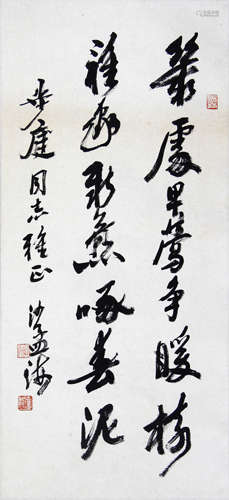 几處早鶯争暖樹
誰家新燕啄春泥
米庭同志雅正 沙孟海